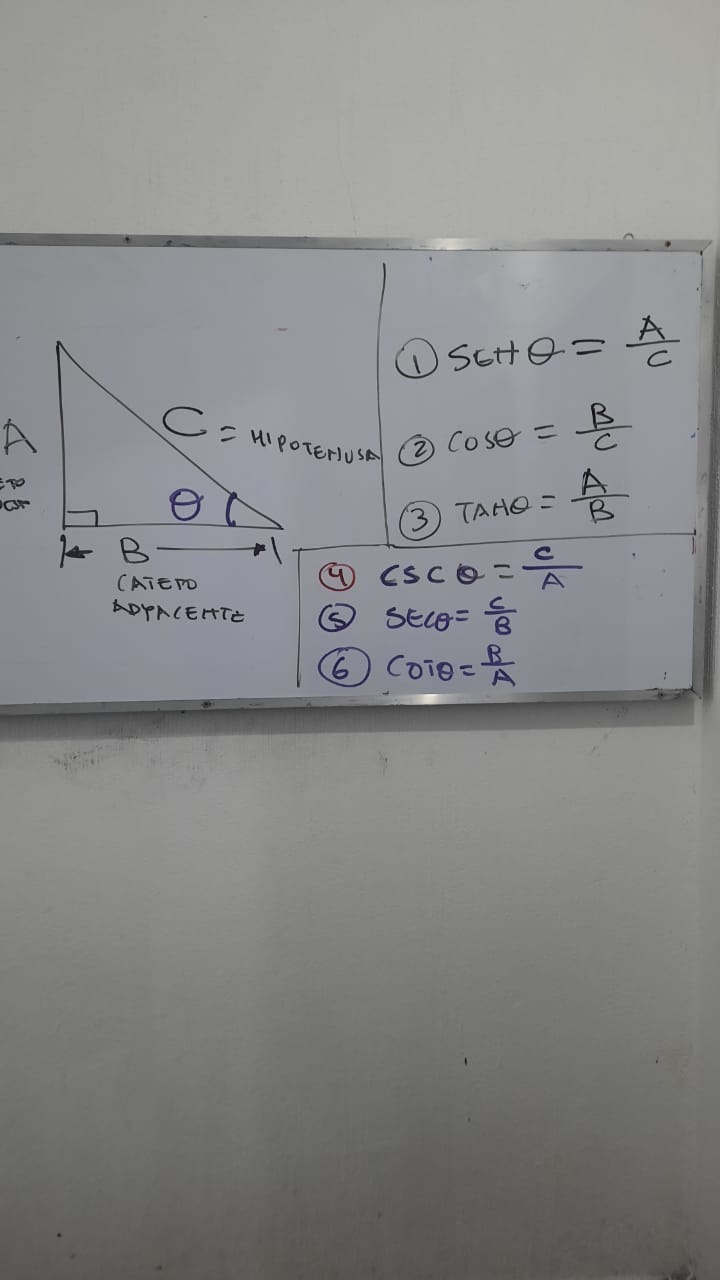 A
C = HIPOTENUSA
θ
B
CATETO
ADYACENTE
① SENθ = A/C
② COSθ = B/C
③ TANθ = A/B
④ CSCθ = C/A
⑤ SECθ = C/B
⑥ COTθ = B/A